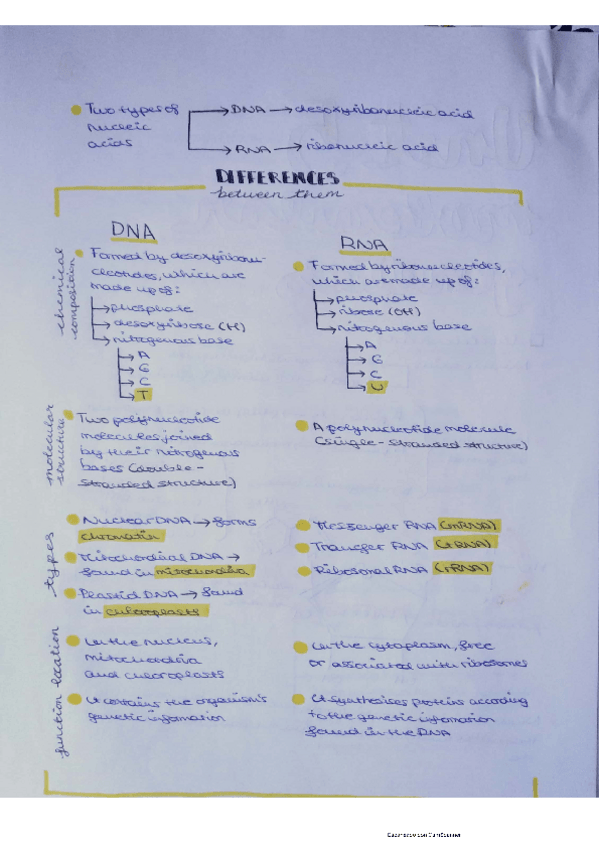 Two types of → DNA → desoxyribonucleic acid
nucleic
acids → RNA → ribonucleic acid
DIFFERENCES
between them
DNA
RNA
chemical
composition
Formed by desoxyribonu-
cleotides, which are
made up of:
phosphate
desoxyribose (H)
nitrogenous base
A
G
C
T
Formed by ribonucleotides,
which are made up of:
phosphate
ribose (OH)
nitrogenous base
A
G
C
U
molecular
structure
Two polynucleotide
molecules joined
by their nitrogenous
bases (double-
stranded structure)
A polynucleotide molecule
(single-stranded structure)
types
Nuclear DNA → forms
chromatin
Mitochondrial DNA →
found in mitochondria
Plastid DNA → found
in chloroplasts
Messenger RNA (mRNA)
Transfer RNA (tRNA)
Ribosomal RNA (rRNA)
location
In the nucleus,
mitochondria
and chloroplasts
In the cytoplasm, free
or associated with ribosomes
function
It contains the organism's
genetic information
It synthesises proteins according
to the genetic information
found in the DNA
Escaneado con CamScanner